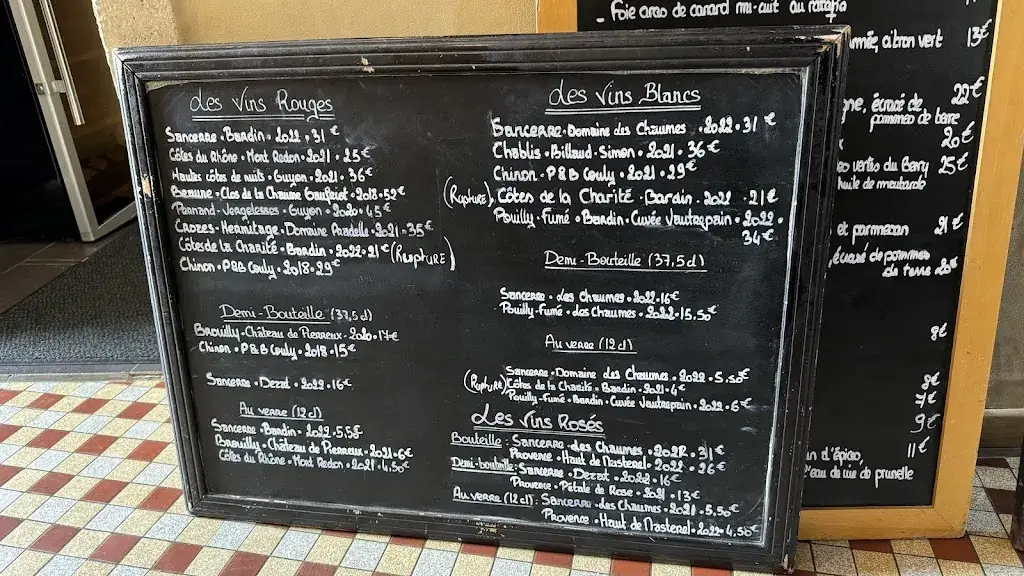 Les Vins Rouges
Sancerre • Bardin • 2022 • 31 €
Côtes du Rhône • Mont Redon • 2021 • 25€
Hautes côtes de nuits • Guyon • 2021 • 36€
Beaune • Clos de la Chaume • 2018 • 52€
Pernand - Vergelesses • Guyon • 2020 • 45€
Crozes - Hermitage • Domaine • 2021 • 35€
Côtes de la Charité • Bardin • 2022 • 21€ (Rupture)
Chinon • P&B Couly • 2018 • 29€
Demi-Bouteille (37,5 cl)
Brouilly • Château de Pierreux • 2020 • 17€
Chinon • P&B Couly • 2018 • 15€
Sancerre • Dezat • 2022 • 16€
Au verre (12 cl)
Sancerre • Bardin • 2022 • 5,5€
Brouilly • Château de Pierreux • 2021 • 6€
Côtes du Rhône • Mont Redon • 2021 • 4,50€
Les Vins Blancs
Sancerre • Domaine des Chaumes • 2022 • 31 €
Chablis • Billaud - Simon • 2021 • 36€
Chinon • P&B Couly • 2021 • 29€
(Rupture) Côtes de la Charité • Bardin • 2021 • 21€
Pouilly - Fumé • Bardin • Cuvée Vautrepain • 2022 •
34€
Demi-Bouteille (37,5 cl)
Sancerre • des Chaumes • 2022 • 16€
Pouilly - Fumé • des Chaumes • 2022 • 15,50€
Au verre (12 cl)
Sancerre • Domaine des Chaumes • 2022 • 5,50€
(Rupture) Côtes de la Charité • Bardin • 2021 • 4€
Pouilly - Fumé • Bardin • Cuvée Vautrepain • 2022 • 6€
Les Vins Rosés
Bouteille : Sancerre • des Chaumes • 2022 • 31€
Provence • Haut de Masterel • 2022 • 26€
Demi-bouteille : Sancerre • Dezat • 2022 • 16€
Provence • Pétale de Rose • 2021 • 13€
Au verre (12 cl) : Sancerre • des Chaumes • 2021 • 5,50€
Provence • Haut de Masterel • 2022 • 4,50€
- Foie gras de canard mi-cuit au ratafia
citron vert 13€
22€
écrasé de
pommes de terre
20€
vertes du Berry 25€
huile de
et parmesan 21€
écrasé de pommes
de terre 20€
8€
8€
9€
11€
d'épice,
l'eau de vie de prunelle